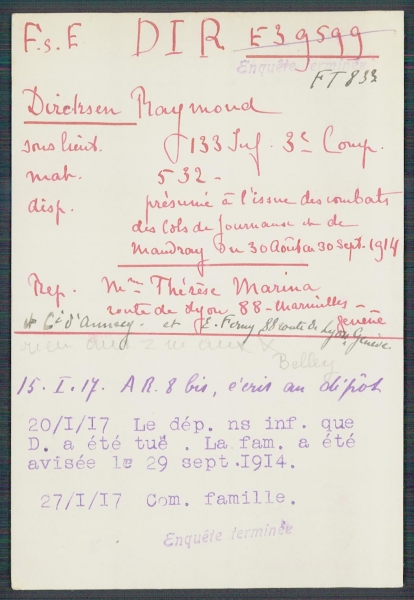 F.s.E DIR E 39599
Enquête terminée
FT 832
Dircksen Raymond
sous lieut. 133 Inf. 3e Comp.
mat. 532 -
disp. présumé à l'issue des combats
des Cols de Journaux et de
Mandray du 30 Août au 30 Sept. 1914
Rep. Mme Thérèse Marina
route de Lyon 88 - Charmilles -
Genève
Ct d'Annecy. et E. Ferny 88 route de Lyon Genève
rien aux 2 m aux X
Belley
15. I. 17. A R. 8 bis, écris au dépôt
20/I/17 Le dép. ns inf. que
D. a été tué . La fam. a été
avisée le 29 sept.1914.
27/I/17 Com. famille.
Enquête terminée